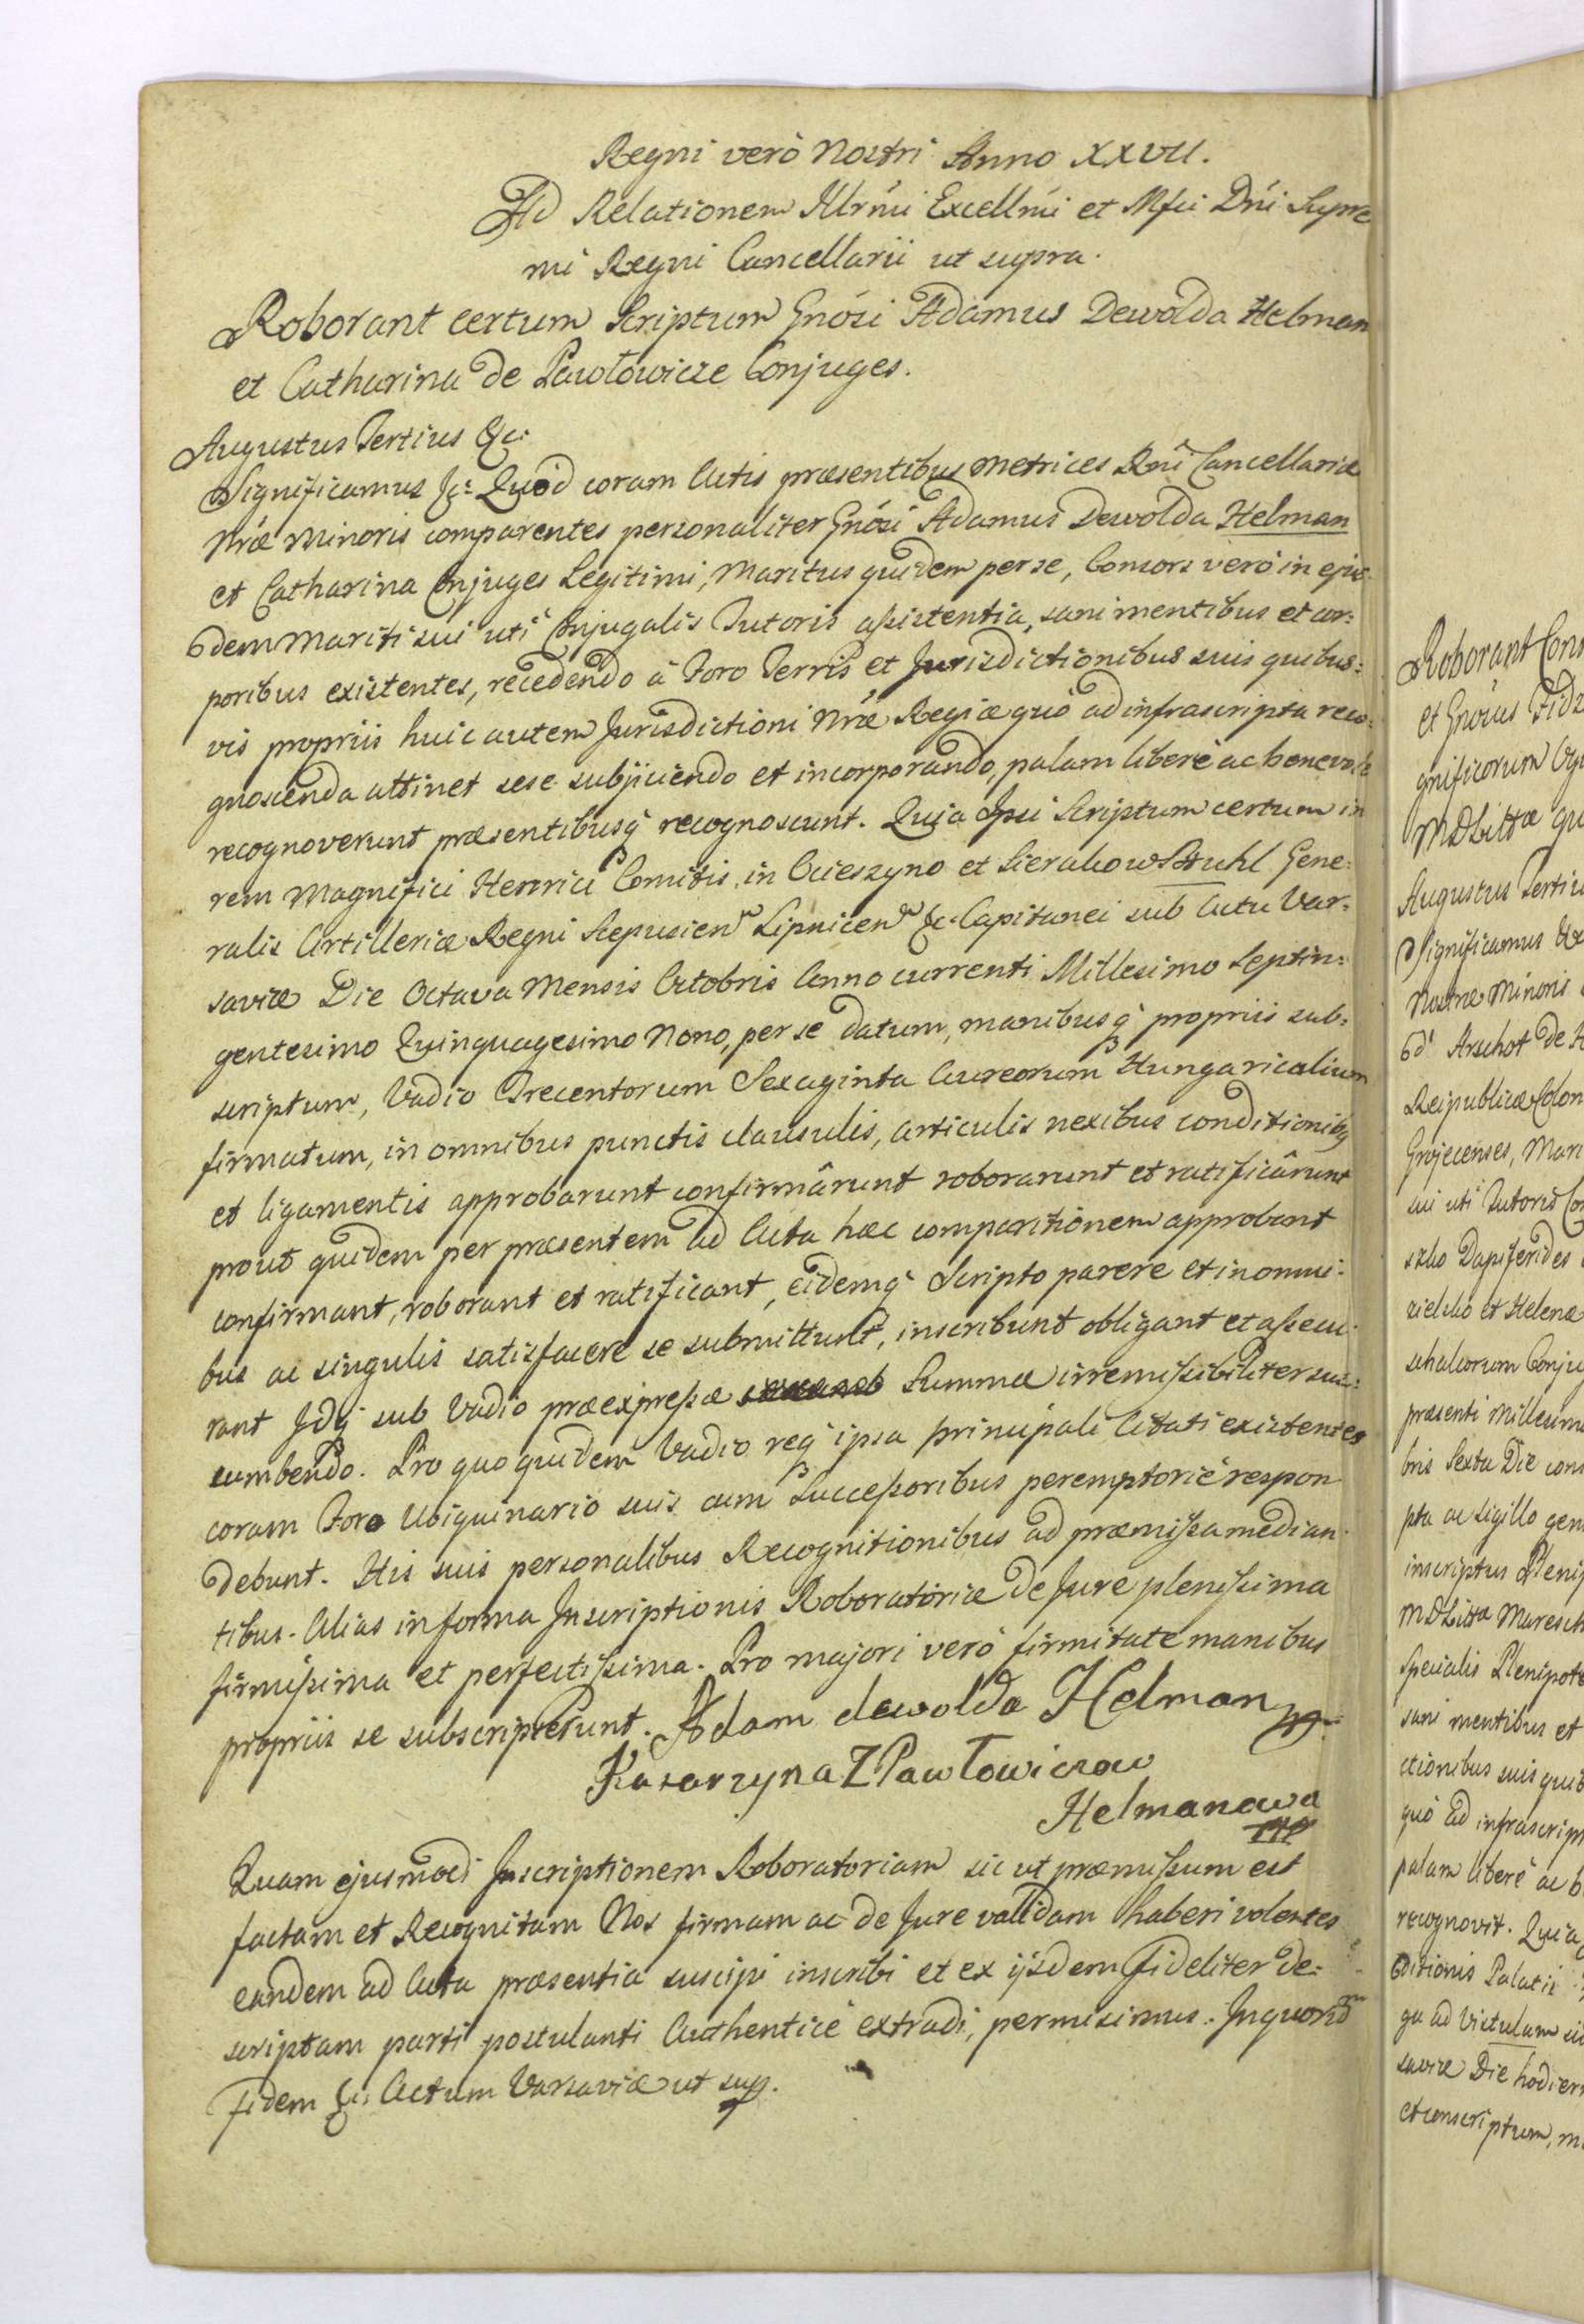 Regni verò Nostri Anno XXVII.
Ad Relationem Illrmi Excellmi et Mfci Dni Supre
mi Regni Cancellarii ut supra.
Roborant certum Scriptum Gnosi Adamus Dewolda Helman
et Catharina de Pawłowicze Conjuges.
Augustus Tertius &c:
Significamus &c: Quòd coram Actis præsentibus Metrices Rni Cancellariæ
Nræ Minoris comparentes personaliter Gnosi Adamus Dewolda Helman
et Catharina Conjuges Legitimi, Maritus quidem per se, Consors verò in ejus
dem Mariti sui uti Conjugalis Tutoris assistentia, sani mentibus et cor:
poribus existentes, recedendo à Foro Terris et Jurisdictionibus suis quibus:
vis propriis huic autem Jurisdictioni Nræ Regiæ quò ad infrascripta reco:
gnoscenda attinet sese subjiciendo et incorporando, palam liberè ac benevole
recognoverunt præsentibusq recognoscunt. Quja Ipsi Scriptum certum in
rem Magnifici Henrici Comitis in Cieszyno et Sierakow Bruhl Gene:
ralis Artilleriæ Regni Scepusien Lipnicen &c: Capitanei sub Actu Var:
saviæ Die Octava Mensis Octobris Anno currenti Millesimo Septin:
gentesimo Quinquagesimo Nono, per se datum, manibusq propriis sub:
scriptum, Vadio Trecentorum Sexaginta Aureorum Hungaricalium
firmatum, in omnibus punctis clausulis, articulis nexibus conditionibq
et ligamentis approbarunt confirmârunt roborarunt et ratificârunt
prout quidem per præsentem ad Acta hæc comparitionem approbant
confirmant, roborant et ratificant, eidemq Scripto parere et in omni:
bus ac singulis satisfacere se submittunt, inscribunt obligant et assecu:
rant Idq sub Vadio præexpressæ Summæ irremissibiliter suc:
cumbendo. Pro quo quidem Vadio req ipsa principali Citati existentes
coram Foro Ubiquinario suis cum Successoribus peremptoriè respon
debunt. His suis personalibus Recognitionibus ad præmissa median:
tibus. Alias in forma Inscriptionis Roboratoriæ de Jure plenissima
firmissima et perfectissima. Pro majori verò firmitate manibus
propriis se subscripserunt. Adam dewolda Helman mp
Katarzyna Z Pawłowiczow
Helmanowa
mp
Quam ejusmodi Inscriptionem Roboratoriam sic ut præmissum est
factam et Recognitam Nos firmam ac de Jure vallidam haberi volentes
eandem ad Acta præsentia suscipi inscribi et ex ijsdem fideliter de:
scriptam parti postulanti Authenticè extradi, permisimus. In quorum
fidem &c: Actum Varsaviæ ut sup.
Roborant
et Gnosus
gnificorum
MDLittæ
Augustus Tertiu
Significamus &c
Nostræ Minoris
d' Arschot de
Reipublicæ
Grojecenses, Mari
sui uti Tutoris
Dapiferides
zielsko et Helenæ
schalcorum Conju
præsenti Millesimo
bris Sexta Die
pta ac Sigillo gen
inscriptus Plenip
MDLittæ Maresch
Specialis Plenipote
sani mentibus et
ctionibus suis quib
quò ad infrascrip
palam liberè ac b
recognovit. Quia
ditionis Palatii
ga ad Vistulam
saviæ Die hodier
et conscriptum,